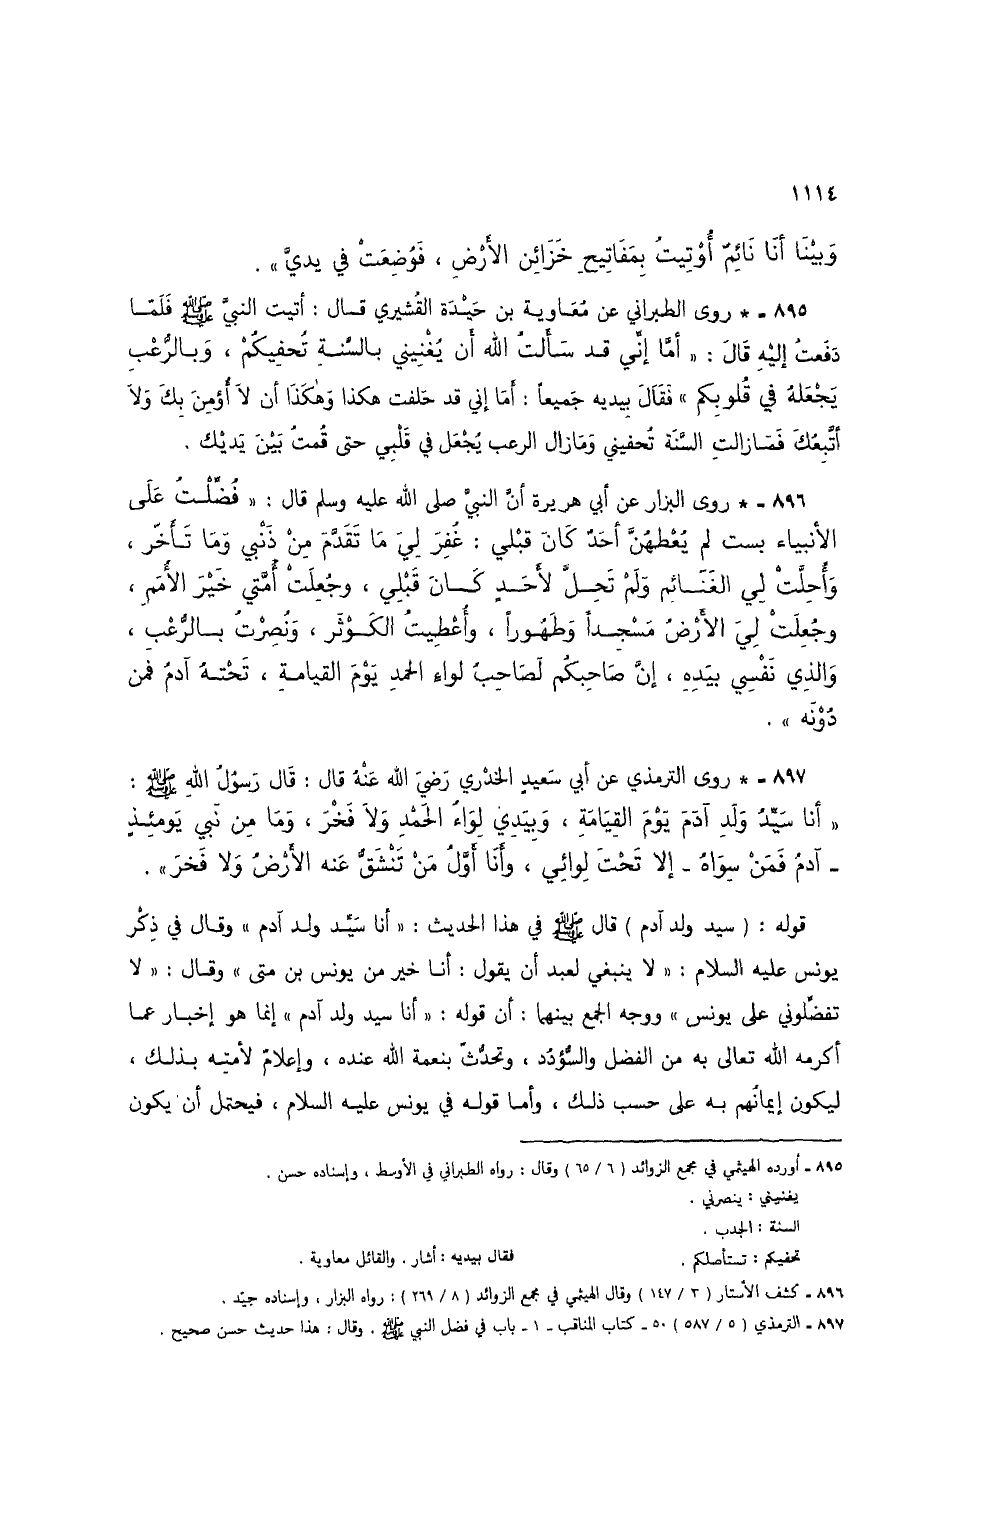 ١١١٤
وَبَيْنَا أنَا نَائِمٌ أُوْتِيتُ بِمَفَاتِيحِ خَزَائِنِ الأَرْضِ ، فَوُضِعَتْ في يديَّ» .
٨٩٥ ـ * روى الطبراني عن مُعَاوية بن حَيْدَة القُشيري قال : أتيت النبيَّ ﷺ فَلَمّا
دَفَعتُ إليْهِ قَالَ : « أمَّا إنِّي قد سَألتُ الله أن يُغْنِيني بالسُّنةِ تُحفيكُمْ ، وَبالرُّعْبِ
يَجْعَلهُ في قُلوبِكم » فقَالَ بيديه جَميعاً : أمَا إني قد حَلفت هكذا وَهٰكَذَا أن لاَ أُؤمِنَ بِكَ وَلاَ
أتَّبِعُكَ فَمَازالتِ السَّنَة تُحفيني وَمَازال الرعب يُجْعَل في قَلْبِي حتى قُمتُ بَيْنَ يَديْك .
٨٩٦ ـ * روى البزار عن أبي هريرة أنَّ النبيَّ صلى الله عليه وسلم قال : « فُضِّلْتُ عَلَى
الأنبياء بست لم يُعْطهُنَّ أحَدٌ كَانَ قبْلي : غُفِرَ لِيَ مَا تَقَدَّمَ مِنْ ذَنْبي وَمَا تَأَخّر ،
وَأُحِلَّتْ لِي الغَنَائم وَلَمْ تَحِلَّ لأَحَدٍ كَانَ قَبْلِي ، وجُعلَتْ أُمَّتي خَيْرَ الأُمَمِ ،
وجُعِلَتْ لِيَ الأَرْضُ مَسْجداً وَطَهُوراً ، وأُعْطِيتُ الكَوْثَر ، وَنُصِرْتُ بالرُّعْبِ ،
وَالذِي نَفْسِي بيَدِهِ ، إنَّ صَاحِبكُم لَصَاحِبُ لواءِ الحمدِ يَوْمَ القيامةِ ، تَحْتهُ آدمُ فمن
دُوْنَه » .
٨٩٧ ـ * روى الترمذي عن أبي سَعيدٍ الخدْري رَضيَ الله عَنْهُ قال : قَال رَسوُلُ اللهِ ﷺ :
« أنا سَيِّدُ وَلَدِ آدَمَ يَوْمَ القِيَامَةِ ، وَبِيَدِي لِوَاءُ الحَمْدِ وَلاَ فَخْرَ ، وَمَا مِن نَبي يَومئِذٍ
ـ آدمُ فَمَنْ سِوَاهُ ـ إلا تَحْتَ لِوائي ، وأنَا أوَّلُ مَنْ تَنْشَقُّ عنه الأَرْضُ وَلا فَخرَ» .
قوله : ( سيد ولد آدم ) قال ﷺ في هذا الحديث : « أنا سَيِّد ولد آدم » وقال في ذِكْر
يونس عليه السلام : « لا ينبغي لعبد أن يقول : أنا خير من يونس بن متى » وقال : « لا
تفضِّلوني على يونس » ووجه الجمع بينهما : أن قوله : « أنا سيد ولد آدم » إنما هو إخبار عما
أكرمه الله تعالى به من الفضل والسُّؤدُد ، وتحدُّثٌ بنعمة الله عنده ، وإعلامٌ لأمتِه بذلك ،
ليكون إيمانُهم به على حسب ذلك ، وأما قوله في يونس عليه السلام ، فيحتمل أن يكون
٨٩٥ ـ أورده الهيثمي في مجمع الزوائد ( ٦ / ٦٥ ) وقال : رواه الطبراني في الأوسط ، وإسناده حسن .
يغنيني : ينصرني .
السنة : الجدب .
تحفيكم : تستأصلكم . فقال بيديه : أشار . والقائل معاوية .
٨٩٦ ـ كشف الأستار ( ٣ / ١٤٧ ) وقال الهيثمي في مجمع الزوائد ( ٨ / ٢٦٩ ) : رواه البزار ، وإسناده جيّد .
٨٩٧ ـ الترمذي ( ٥ / ٥٨٧ ) ٥٠ ـ كتاب المناقب ـ ١ ـ باب في فضل النبي ﷺ . وقال : هذا حديث حسن صحيح .